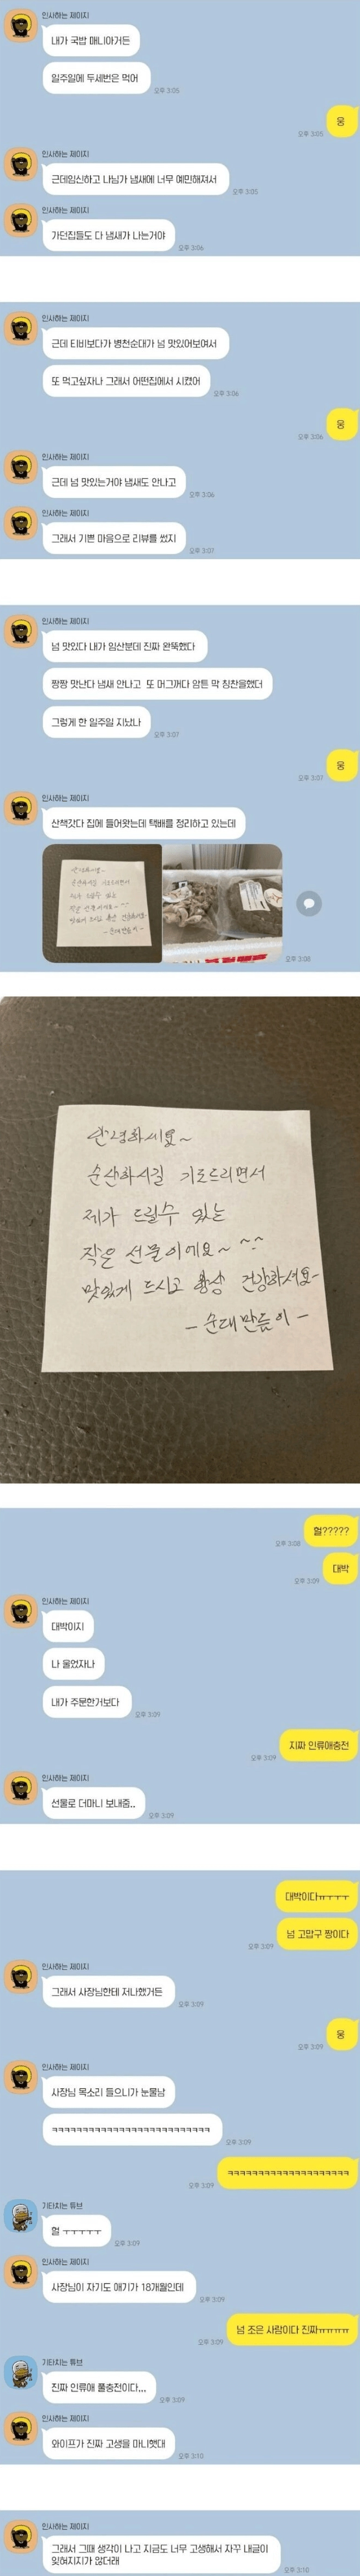 인사하는 제이지
내가 국밥 매니아거든
일주일에 두세번은 먹어
오후 3:05
웅
오후 3:05
인사하는 제이지
근데임신하고 나님가 냄새에 너무 예민해져서
오후 3:05
인사하는 제이지
가던집들도 다 냄새가 나는거야
오후 3:06
인사하는 제이지
근데 티비보다가 병천순대가 넘 맛있어보여서
또 먹고싶자나 그래서 어떤집에서 시켰어
오후 3:06
웅
오후 3:06
인사하는 제이지
근데 넘 맛있는거야 냄새도 안나고
오후 3:06
인사하는 제이지
그래서 기쁜 마음으로 리뷰를 썼지
오후 3:07
인사하는 제이지
넘 맛있다 내가 임산분데 진짜 완뚝했다
짱짱 맛난다 냄새 안나고 또 머그꺼다 암튼 막 칭찬을했더
그렇게 한 일주일 지났나
오후 3:07
웅
오후 3:07
인사하는 제이지
산책갓다 집에 들어왓는데 택배를 정리하고 있는데
오후 3:08
안녕하세요~
순산하시길 기도드리면서
제가 드릴수 있는
작은 선물이에요~ ^^
맛있게 드시고 항상 건강하세요~
- 순대만듦이 -
헐?????
오후 3:08
대박
오후 3:09
인사하는 제이지
대박이지
나 울었자나
내가 주문한거보다
오후 3:09
지짜 인류애충전
오후 3:09
인사하는 제이지
선물로 더마니 보내줌..
오후 3:09
대박이다ㅠㅜㅜㅜ
넘 고맙구 짱이다
오후 3:09
인사하는 제이지
그래서 사장님한테 저나했거든
오후 3:09
웅
오후 3:09
인사하는 제이지
사장님 목소리 들으니가 눈물남
ㅋㅋㅋㅋㅋㅋㅋㅋㅋㅋㅋㅋㅋㅋㅋㅋㅋㅋㅋㅋㅋㅋㅋㅋㅋㅋ
오후 3:09
ㅋㅋㅋㅋㅋㅋㅋㅋㅋㅋㅋㅋㅋㅋㅋㅋㅋㅋㅋㅋ
오후 3:09
기타치는 튜브
헐 ㅜㅜㅜㅜㅜ
오후 3:09
인사하는 제이지
사장님이 자기도 애기가 18개월인데
오후 3:09
넘 조은 사람이다 진짜ㅠㅠㅠㅠ
오후 3:09
기타치는 튜브
진짜 인류애 풀충전이다...
오후 3:09
인사하는 제이지
와이프가 진짜 고생을 마니햇대
오후 3:10
인사하는 제이지
그래서 그때 생각이 나고 지금도 너무 고생해서 자꾸 내글이
잊혀지지가 않더래
오후 3:10